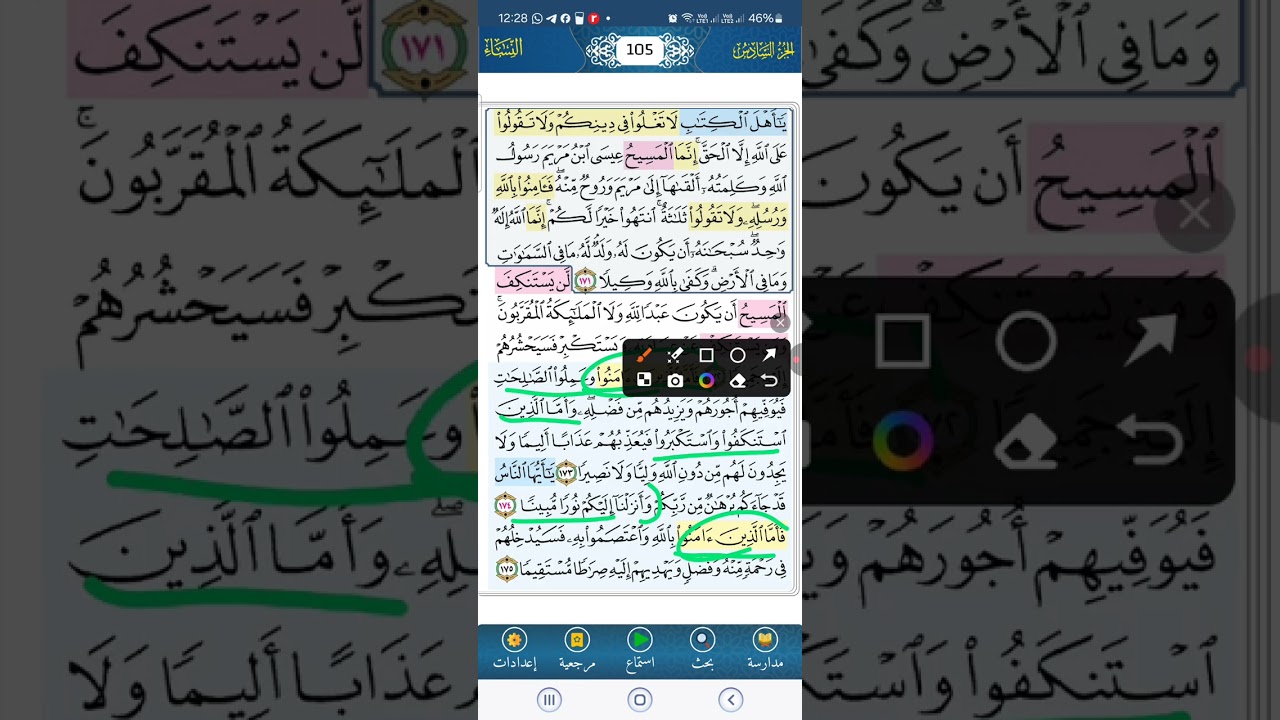 12:28
46%
النِّسَاء
105
الجزء السادس
يَٰٓأَهْلَ ٱلْكِتَٰبِ لَا تَغْلُوا۟ فِى دِينِكُمْ وَلَا تَقُولُوا۟
عَلَى ٱللَّهِ إِلَّا ٱلْحَقَّ ۚ إِنَّمَا ٱلْمَسِيحُ عِيسَى ٱبْنُ مَرْيَمَ رَسُولُ
ٱللَّهِ وَكَلِمَتُهُۥٓ أَلْقَىٰهَآ إِلَىٰ مَرْيَمَ وَرُوحٌ مِّنْهُ ۖ فَـَٔامِنُوا۟ بِٱللَّهِ
وَرُسُلِهِۦ ۖ وَلَا تَقُولُوا۟ ثَلَٰثَةٌ ۚ ٱنتَهُوا۟ خَيْرًا لَّكُمْ ۚ إِنَّمَا ٱللَّهُ إِلَٰهٌ
وَٰحِدٌ ۖ سُبْحَٰنَهُۥٓ أَن يَكُونَ لَهُۥ وَلَدٌ ۘ لَّهُۥ مَا فِى ٱلسَّمَٰوَٰتِ
وَمَا فِى ٱلْأَرْضِ ۗ وَكَفَىٰ بِٱللَّهِ وَكِيلًا ١٧١ لَّن يَسْتَنكِفَ
ٱلْمَسِيحُ أَن يَكُونَ عَبْدًا لِّلَّهِ وَلَا ٱلْمَلَٰٓئِكَةُ ٱلْمُقَرَّبُونَ ۚ
وَيَسْتَكْبِرْ فَسَيَحْشُرُهُمْ
ءَامَنُوا۟ وَعَمِلُوا۟ ٱلصَّٰلِحَٰتِ
فَيُوَفِّيهِمْ أُجُورَهُمْ وَيَزِيدُهُم مِّن فَضْلِهِۦ ۖ وَأَمَّا ٱلَّذِينَ
ٱسْتَنكَفُوا۟ وَٱسْتَكْبَرُوا۟ فَيُعَذِّبُهُمْ عَذَابًا أَلِيمًا وَلَا
يَجِدُونَ لَهُم مِّن دُونِ ٱللَّهِ وَلِيًّا وَلَا نَصِيرًا ١٧٣ يَٰٓأَيُّهَا ٱلنَّاسُ
قَدْ جَآءَكُم بُرْهَٰنٌ مِّن رَّبِّكُمْ وَأَنزَلْنَآ إِلَيْكُمْ نُورًا مُّبِينًا ١٧٤
فَأَمَّا ٱلَّذِينَ ءَامَنُوا۟ بِٱللَّهِ وَٱعْتَصَمُوا۟ بِهِۦ فَسَيُدْخِلُهُمْ
فِى رَحْمَةٍ مِّنْهُ وَفَضْلٍ وَيَهْدِيهِمْ إِلَيْهِ صِرَٰطًا مُّسْتَقِيمًا ١٧٥
مدارسة
بحث
استماع
مرجعية
إعدادات